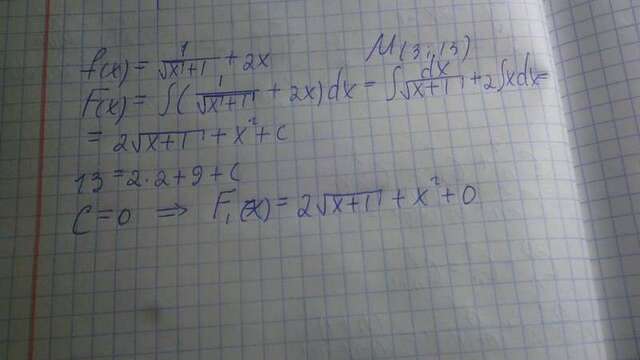 f(x) = 1/√(x+1) + 2x M(3; 13)
F(x) = ∫(1/√(x+1) + 2x)dx = ∫dx/√(x+1) + 2∫xdx =
= 2√(x+1) + x² + C
13 = 2·2 + 9 + C
C = 0 ⇒ F₁(x) = 2√(x+1) + x² + 0